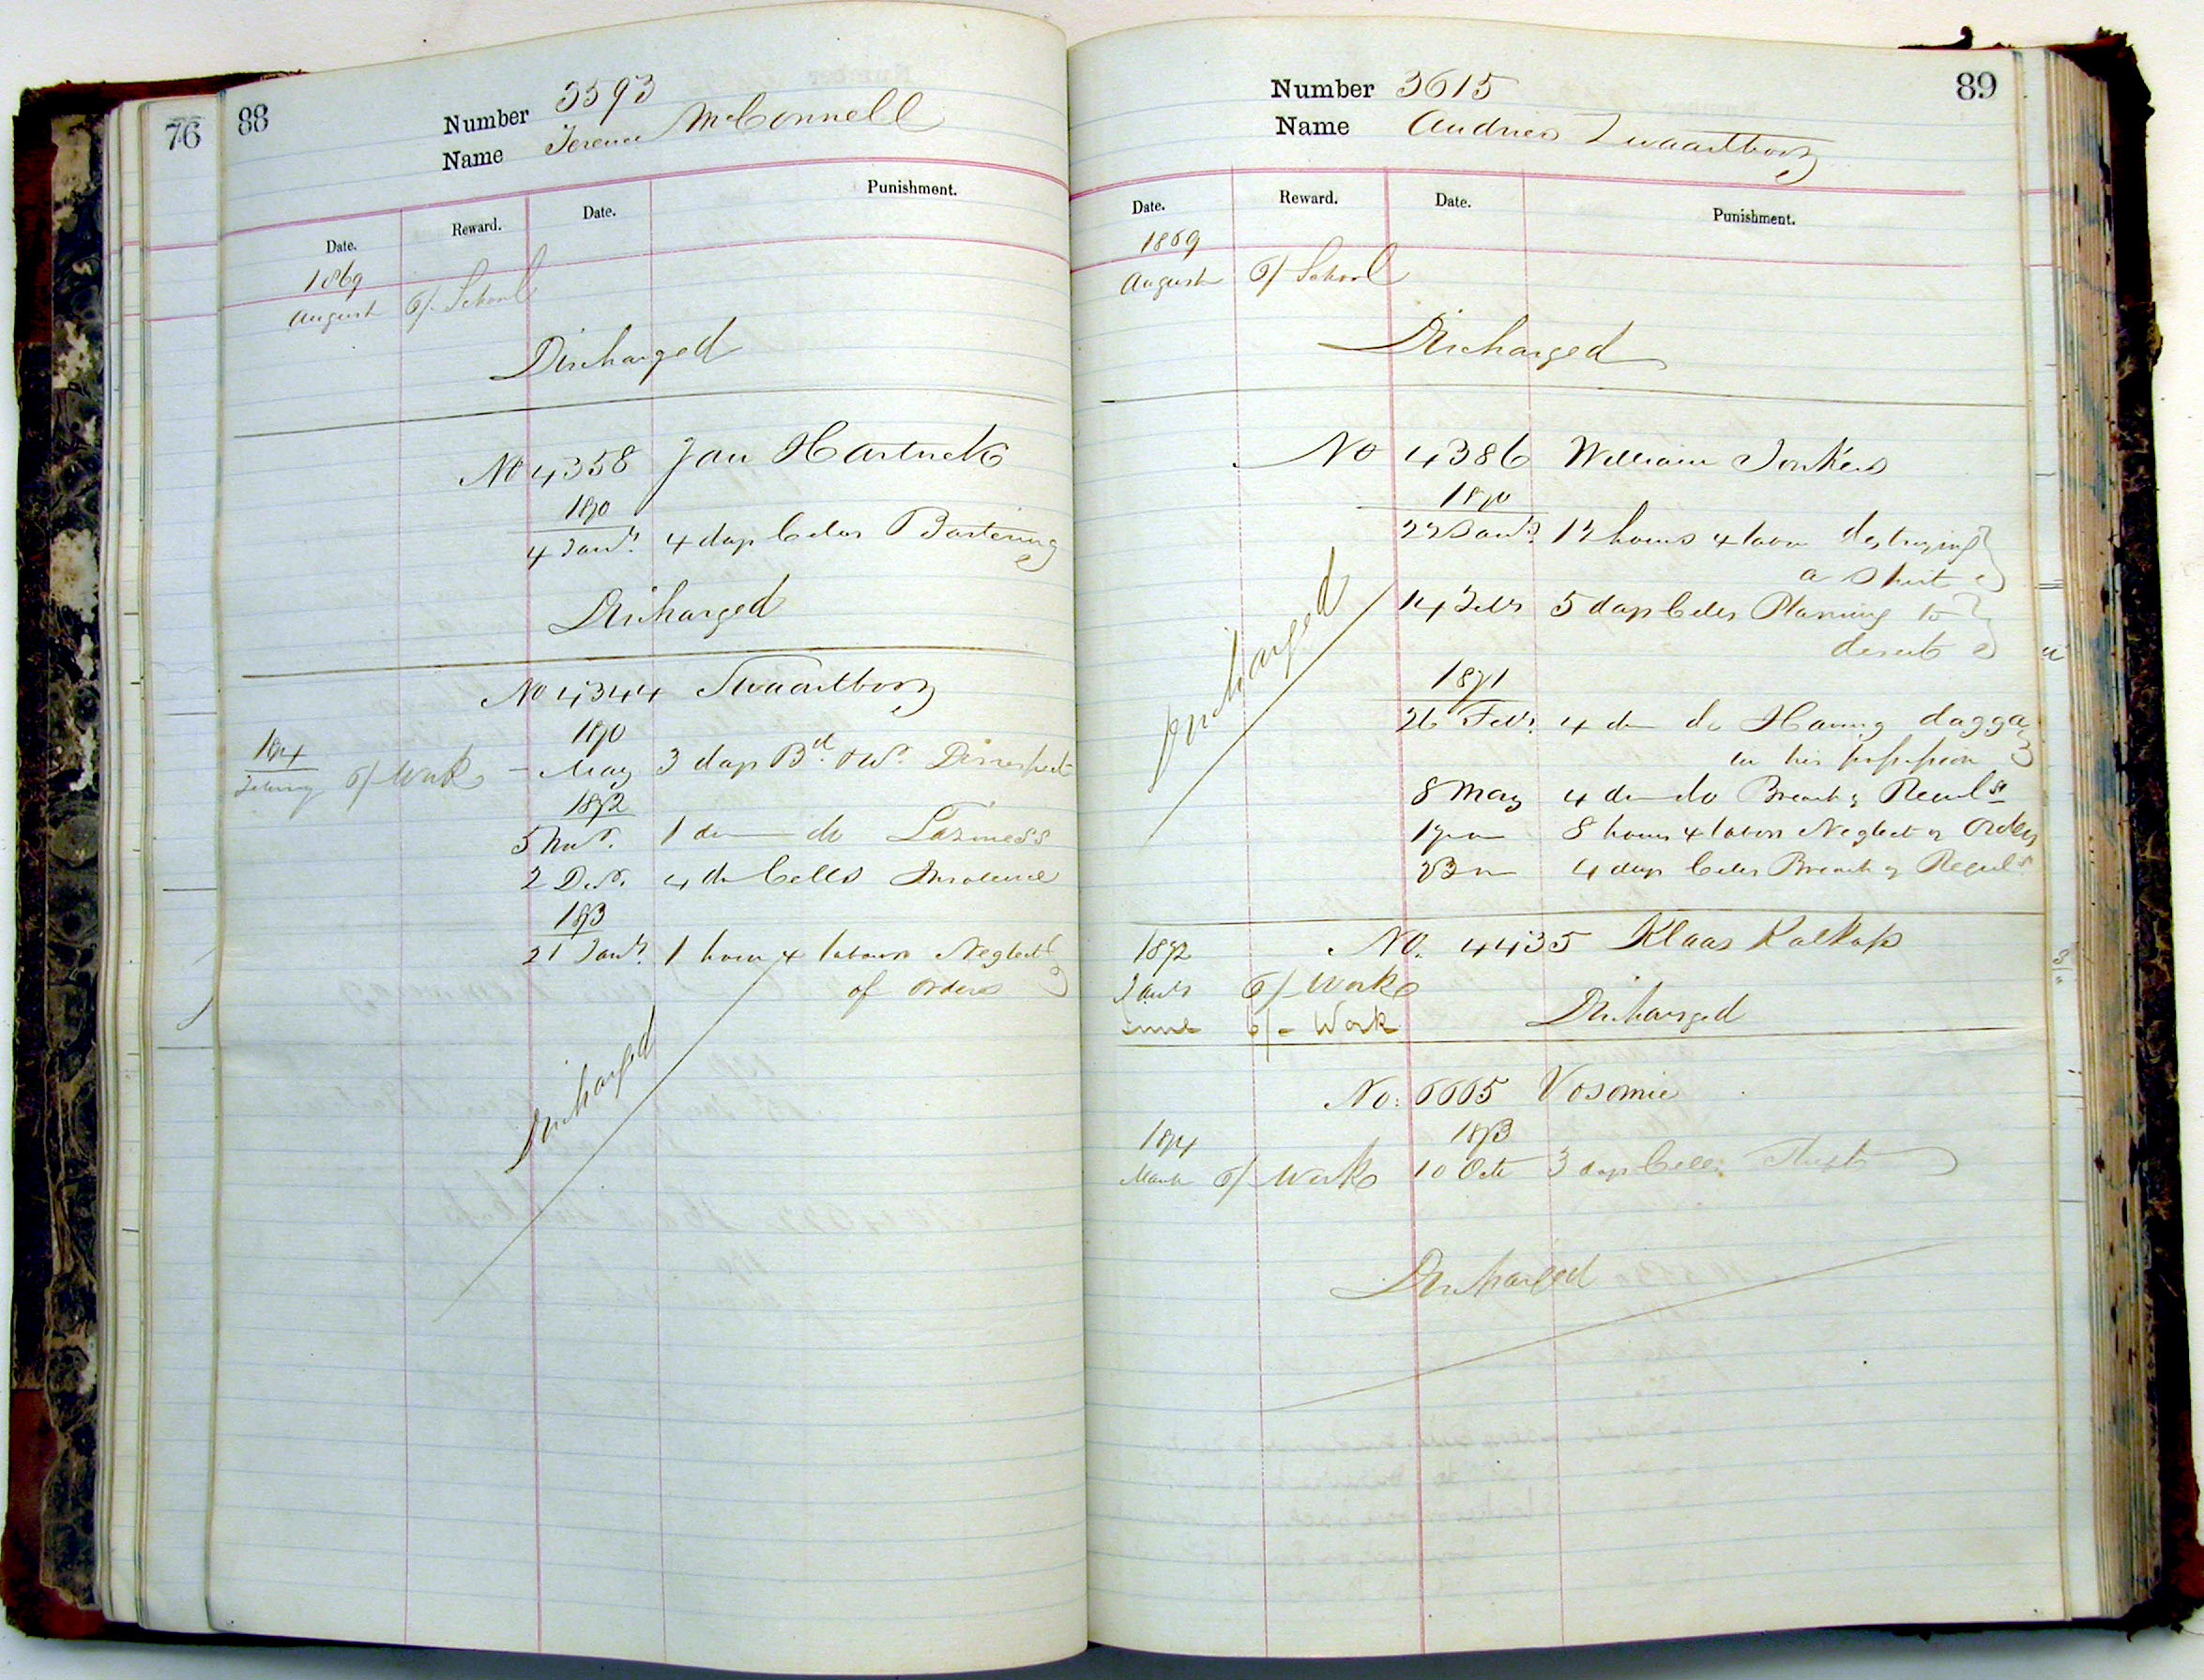 76
88
Number 3593
Name Terence McConnell
Date. Reward. Date. Punishment.
1869
August 6/- School
Discharged
No 4358 Jan Hartnek
1870
4 Jany. 4 days Cells Bartering
Discharged
No 4344 Swaartbooy
1870
1874
May 3 days Bd. & Wr. Disrespect
6/- Work
1872
5 Nov. 1 do do Laziness
2 Der. 4 do Cells Insolence
1873
21 Jany. 1 hour x labour Neglect
of orders
Discharged
89
Number 3615
Name Andries Zwaartbooy
Date. Reward. Date. Punishment.
1869
August 6/ School
Discharged
No 4386 William Jonkers
1870
22 Jany. 12 hours x labor destroying
a Shirt
14 Feby 5 days Cells Planning to
desert
1871
26 Feby. 4 do do Having dagga
in his possession
8 May 4 do do Breach of Reguls
17 8 hours x labor Neglect of Orders
23 4 days Cells Breach of Reguls
Discharged
1872 No. 4435 Klaas Kalkop
Jany 6/- Work
Discharged
June 6/- Work
No. 6665 Vosomie
1874 1873
March 6/ Work 10 Octr 3 days Cells. Theft
Discharged